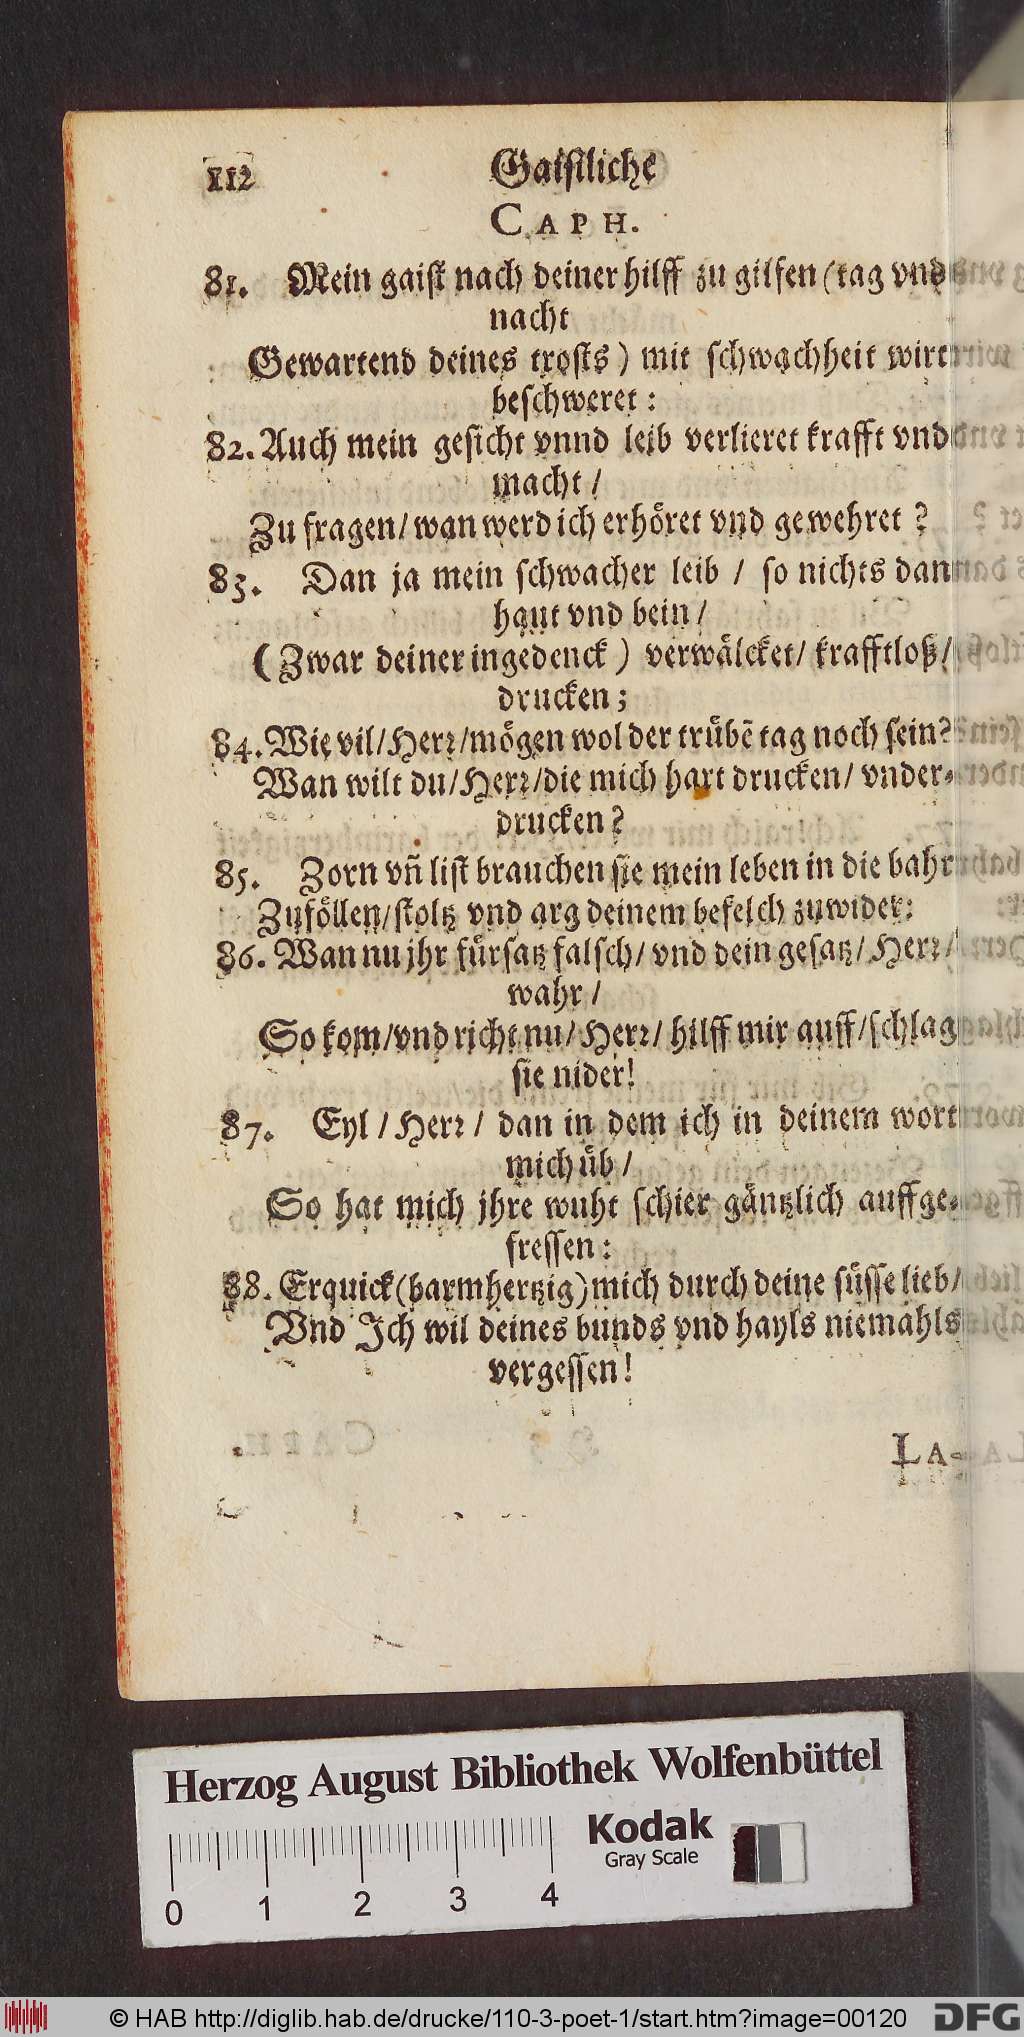 112 Gaistliche
CAPH.
81. Mein gaist nach deiner hilff zu gilfen (tag vnd
nacht
Gewartend deines trosts) mit schwachheit wirt
beschweret:
82. Auch mein gesicht vnnd leib verlieret krafft vnd
macht /
Zu fragen/ wan werd ich erhöret vnd gewehret ?
83. Dan ja mein schwacher leib / so nichts dan
haut vnd bein /
(Zwar deiner ingedenck) verwälcket/ krafftloß/
drucken;
84. Wie vil/ Herr/ mögen wol der trübẽ tag noch sein?
Wan wilt du/ Herr/ die mich hart drucken/ vnder-
drucken?
85. Zorn vñ list brauchen sie mein leben in die bahr
Zuföllen/ stoltz vnd arg deinem befelch zuwider:
86. Wan nu jhr fürsatz falsch/ vnd dein gesatz/ Herr/
wahr /
So kom/ vnd richt nu/ Herr/ hilff mir auff/ schlag
sie nider!
87. Eyl / Herr / dan in dem ich in deinem wort
mich üb /
So hat mich jhre wuht schier gäntzlich auffge-
fressen:
88. Erquick (barmhertzig) mich durch deine süsse lieb/
Vnd Ich wil deines bunds vnd hayls niemahls
vergessen!
LA-
Herzog August Bibliothek Wolfenbüttel
Kodak
Gray Scale
0 1 2 3 4
© HAB http://diglib.hab.de/drucke/110-3-poet-1/start.htm?image=00120
DFG